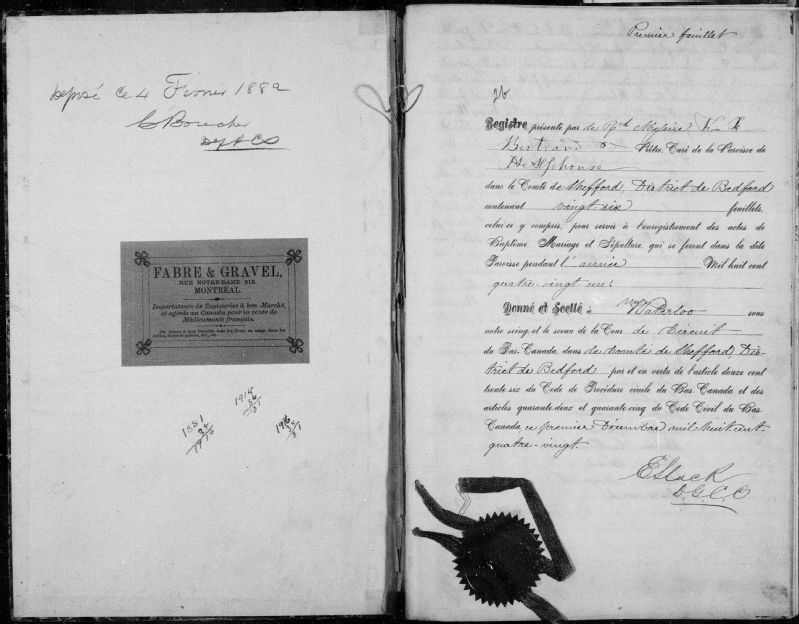 Deposé ce 4 Fevrier 1882
Boucher
FABRE & GRAVEL,
RUE NOTRE-DAME 219,
MONTRÉAL.
Importateurs de Tapisseries à bon Marché,
et agents au Canada pour la vente de
Médicaments français.
1881
1915
1916
Premier feuillet
26
Registre présenté par le Rvd Messire
Bertrand Prêtre, Curé de la Paroisse de
St Alphonse
dans le Comté de Shefford, District de Bedford
contenant vingt-six feuillets,
celui-ci y compris, pour servir à l'enregistrement des actes de
Baptême, Mariage et Sépulture, qui se feront dans la dite
Paroisse pendant l'année Mil huit cent
quatre-vingt un.
Donné et Scellé à Waterloo sous
notre seing et le sceau de la Cour de Circuit
du Bas-Canada, dans le Comté de Shefford, Dis-
trict de Bedford par et en vertu de l'article douze cent
trente-six du Code de Procédure civile du Bas-Canada et des
articles quarante-deux et quarante-cinq du Code Civil du Bas-
Canada, ce premier Décembre mil huit cent-
quatre-vingt
D.G.C.C